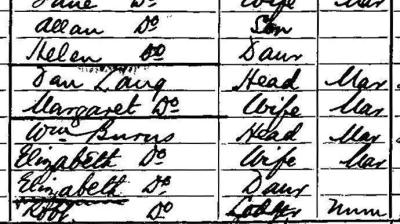 Jane Do Wife Mar
Allan Do Son
Helen Do Daur
Dan Laug Head Mar
Margaret Do Wife Mar
Wm Burns Head Mar
Elizabeth Do Wife Mar
Elizabeth Do Daur
Robt Do Lodger Unm